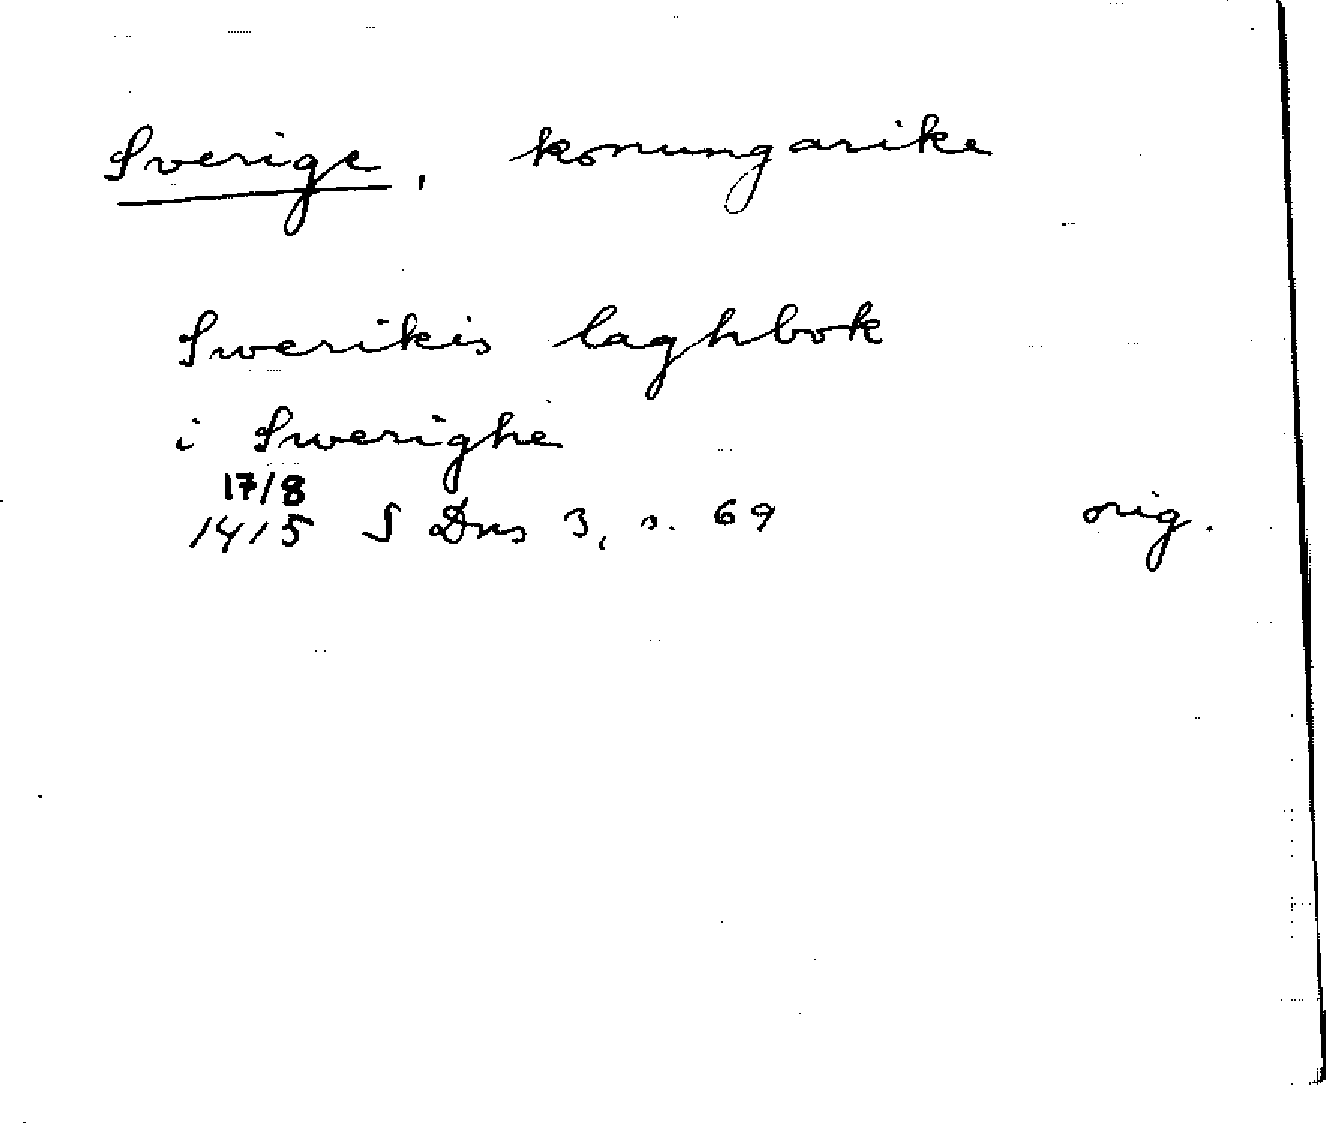 Sverige, konungarike
Swerikis laghbok
i Swerighe
17/8
1415 S Dns 3, s. 69 orig.